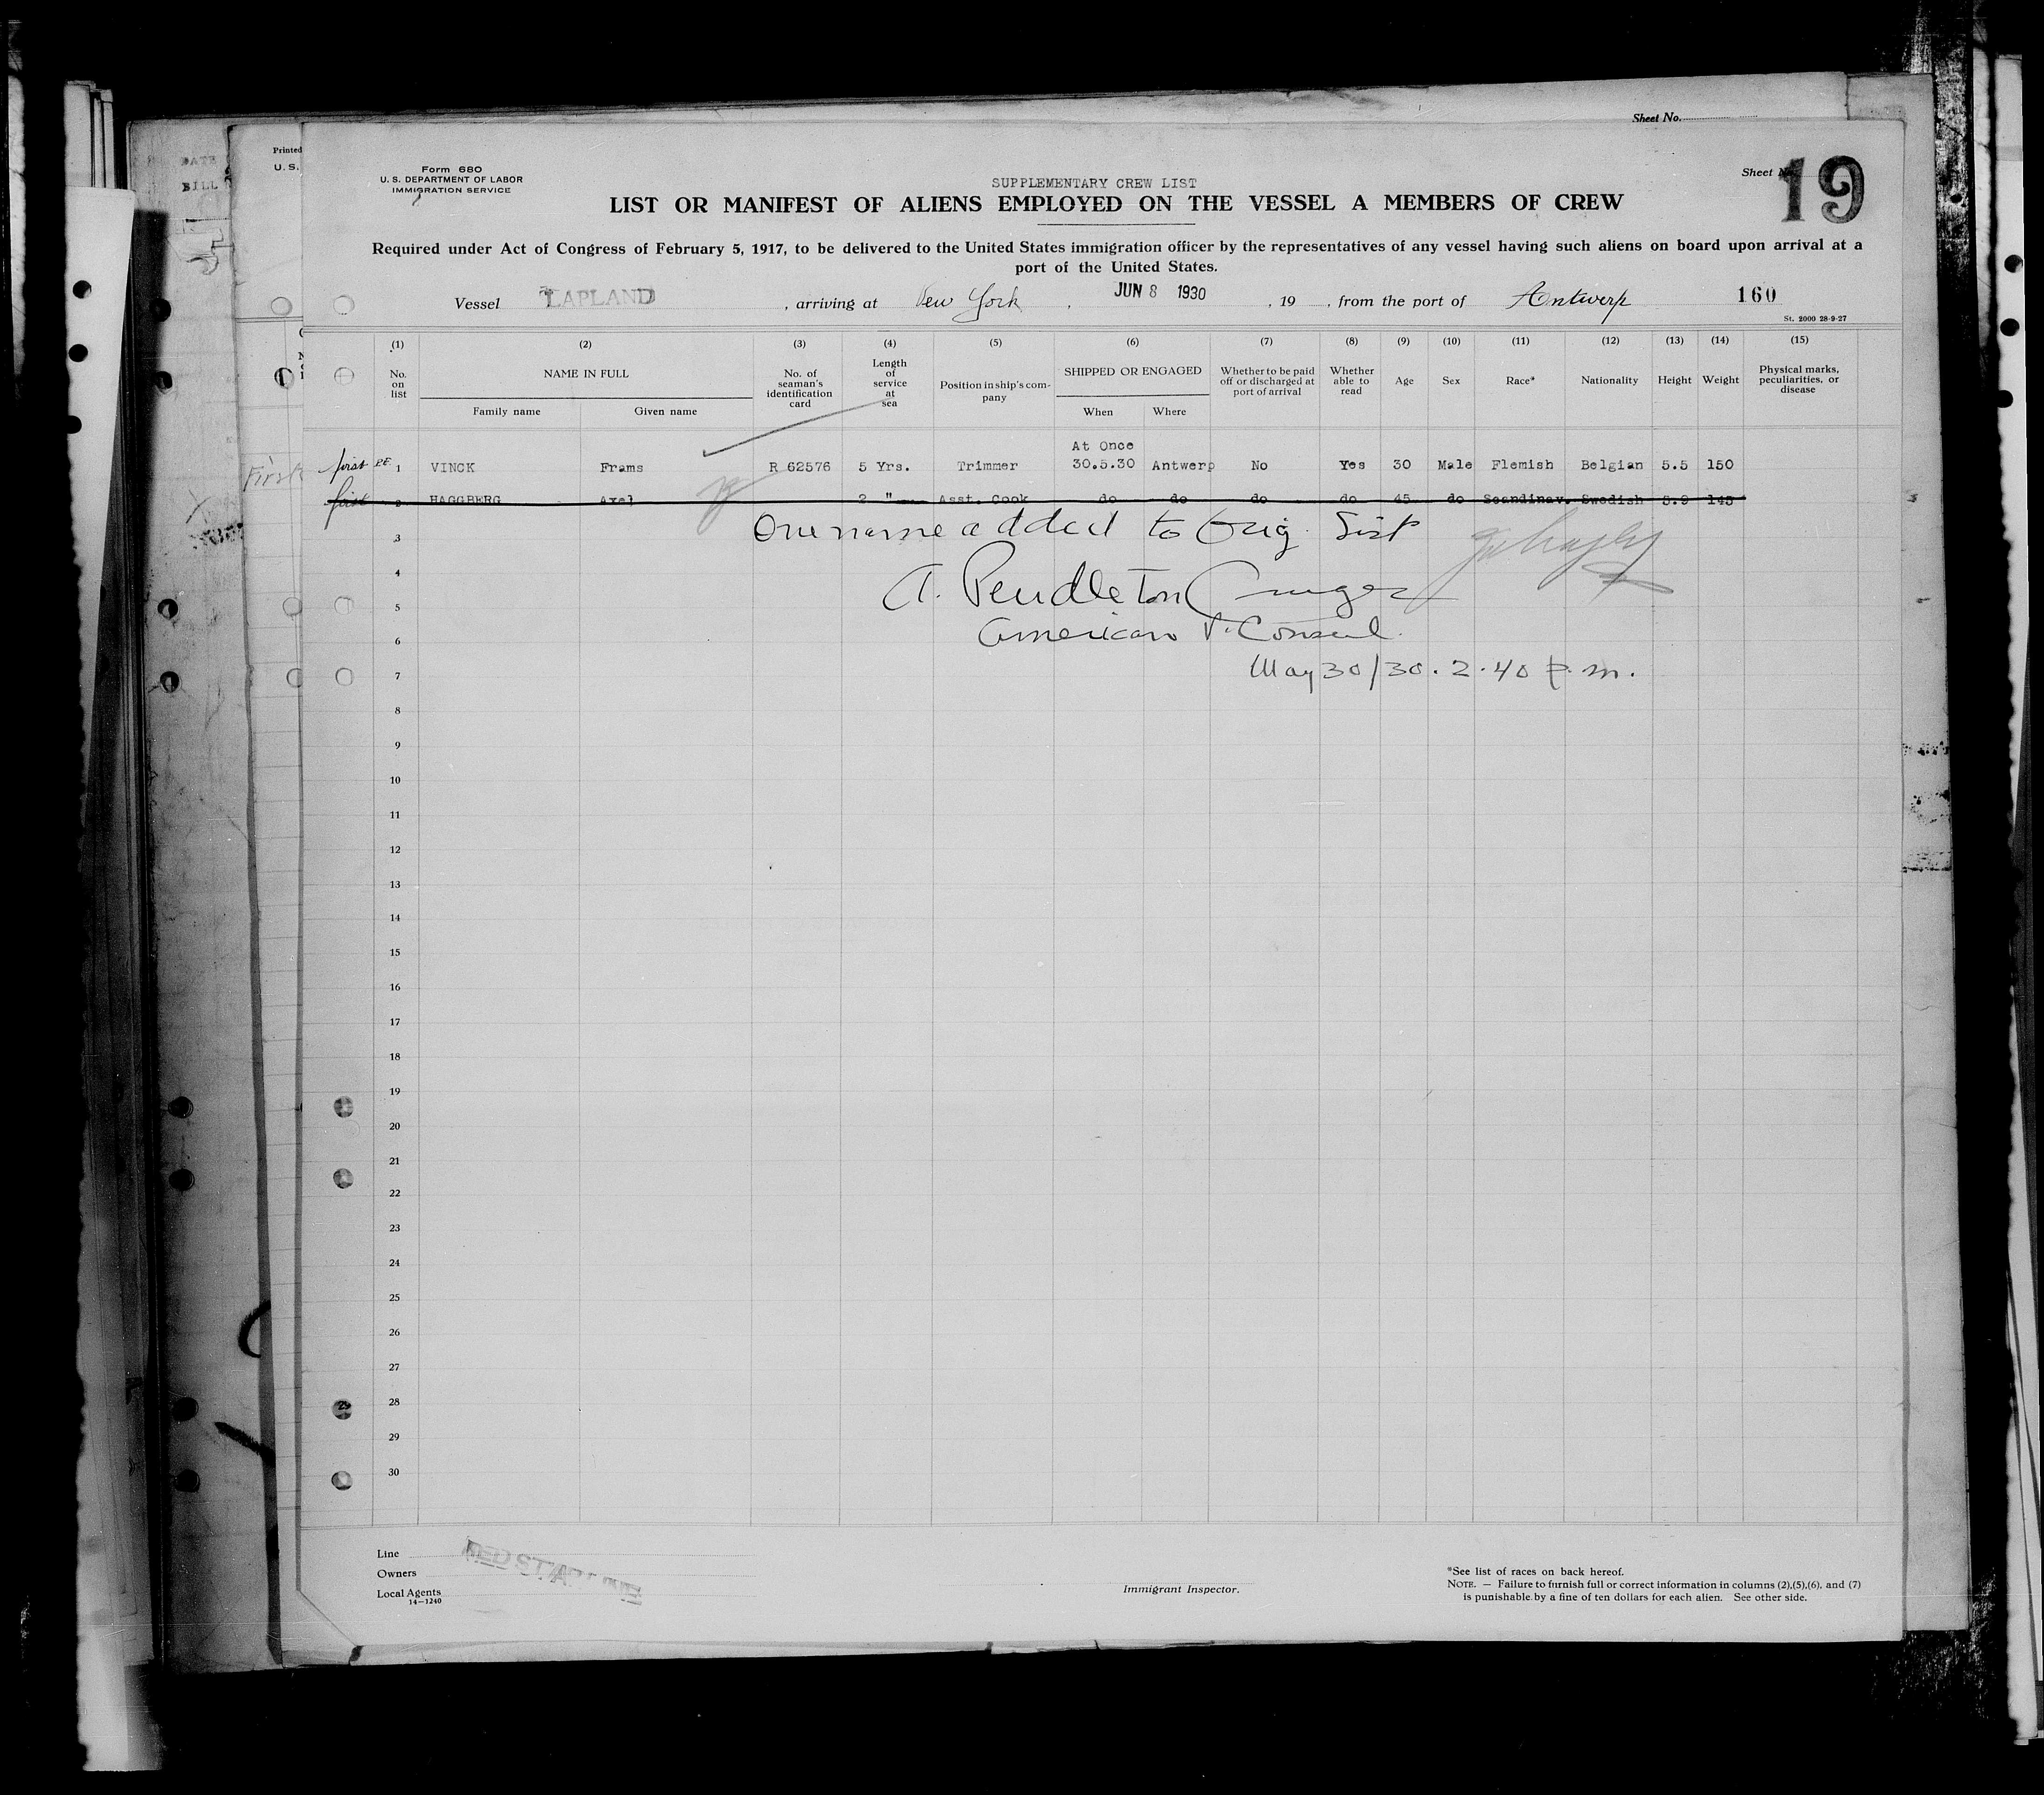 Sheet No.
Printed
U. S.
DATE
BILL
Form 680
U. S. DEPARTMENT OF LABOR
IMMIGRATION SERVICE
SUPPLEMENTARY CREW LIST
Sheet No.
19
LIST OR MANIFEST OF ALIENS EMPLOYED ON THE VESSEL A MEMBERS OF CREW
Required under Act of Congress of February 5, 1917, to be delivered to the United States immigration officer by the representatives of any vessel having such aliens on board upon arrival at a
port of the United States.
Vessel LAPLAND , arriving at New York , JUN 8 1930 , 19 , from the port of Antwerp 160
St. 2000 28-9-27
(1) (2) (3) (4) (5) (6) (7) (8) (9) (10) (11) (12) (13) (14) (15)
No. on list NAME IN FULL Family name Given name No. of seaman's identification card Length of service at sea Position in ship's company SHIPPED OR ENGAGED When Where Whether to be paid off or discharged at port of arrival Whether able to read Age Sex Race* Nationality Height Weight Physical marks, peculiarities, or disease
At Once
First first 1 VINCK Frams R 62576 5 Yrs. Trimmer 30.5.30 Antwerp No Yes 30 Male Flemish Belgian 5.5 150
first 2 HAGGBERG Axel 2 " Asst. Cook do do do do 45 do Scandinav. Swedish 5.9 145
3 One name added to Orig. List
4 A. Pendleton Cruger
5
6 American V. Consul.
7 May 30/30. 2.40 p.m.
8
9
10
11
12
13
14
15
16
17
18
19
20
21
22
23
24
25
26
27
28
29
30
Line RED STAR LINE
Owners
Local Agents
14-1240
Immigrant Inspector.
*See list of races on back hereof.
NOTE. — Failure to furnish full or correct information in columns (2),(5),(6), and (7)
is punishable by a fine of ten dollars for each alien. See other side.